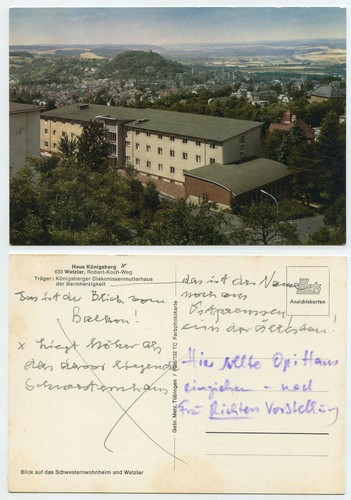 Haus Königsberg x
633 Wetzlar, Robert-Koch-Weg
Träger: Königsberger Diakonissenmutterhaus
der Barmherzigkeit
Das ist der Blick vom
Balkon!
x liegt höher als
das davor liegende
Schwesternhaus
Blick auf das Schwesternwohnheim und Wetzlar
Gebr. Metz, Tübingen /132 TC Farbphotokarte
das ist der Name
noch aus
Ostpreussen
ein der ältesten.
Metz
Ansichtskarten
Hier sollte Opi Haus
einziehen – nach
Frau Richters Vorstellung